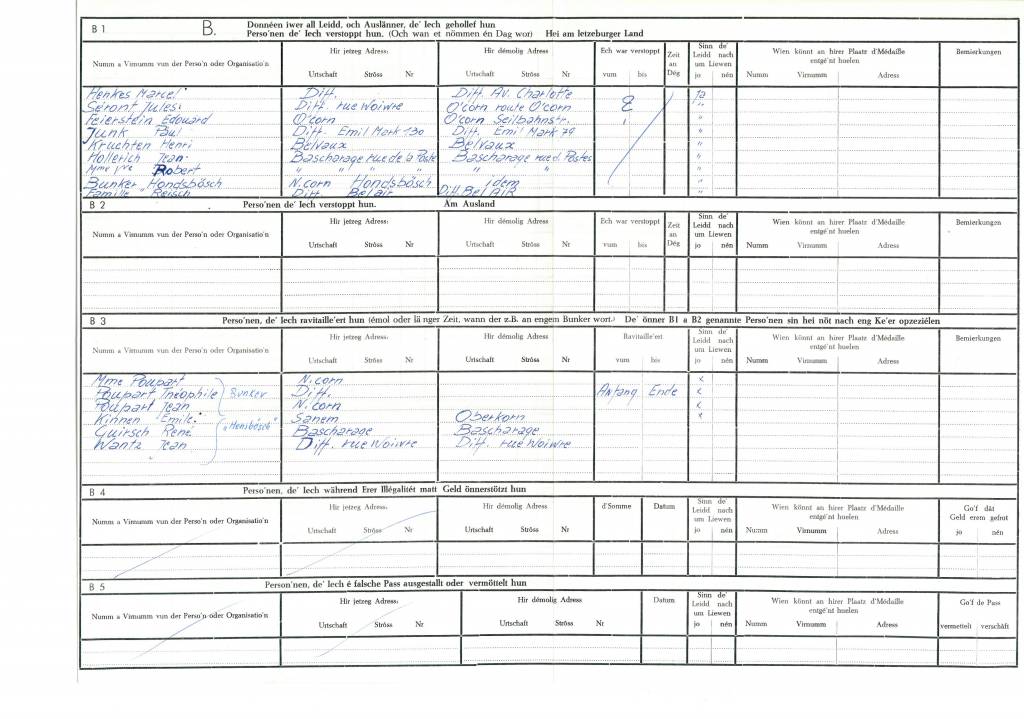 B 1 B. Donnéen iwer all Leidd, och Auslänner, de' Iech gehollef hun
Perso'nen de' Iech verstoppt hun. (Och wan et nömmen én Dag wor) Hei am letzeburger Land
Numm a Virnumm vun der Perso'n oder Organisatio'n Hir jetzeg Adress: Hir démolig Adress: Ech war verstoppt Zeit an Dég Sinn de' Leidd nach um Liewen Wien könnt an hirer Plaatz d'Médaille entgé'nt huelen Bemierkungen
Urtschaft Ströss Nr Urtschaft Ströss Nr vum bis jo nén Numm Virnumm Adress
Henkes Marcel Diff. Diff. Av. Charlotte ja
Séront Jules Diff. rue Woivre O'corn route O'corn "
Feierstein Edouard O'corn O'corn Seilbahnstr. "
Junk Paul Diff. Emil Mark 130 Diff. Emil Mark 79 "
Kruchten Henri Belvaux Belvaux "
Hollerich Jean Bascharage rue de la Poste Bascharage rue d. Postes "
Mme Vve Robert " " " " " " "
Bunker Hondsbösch N.corn Hondsbösch idem "
Famille Reisch Diff. Bel air Diff. Bel Air "
B 2 Perso'nen de' Iech verstoppt hun. Am Ausland
Numm a Virnumm vun der Perso'n oder Organisatio'n Hir jetzeg Adress: Hir démolig Adress: Ech war verstoppt Zeit an Dég Sinn de' Leidd nach um Liewen Wien könnt an hirer Plaatz d'Médaille entgé'nt huelen Bemierkungen
Urtschaft Ströss Nr Urtschaft Ströss Nr vum bis jo nén Numm Virnumm Adress
B 3 Perso'nen, de' Iech ravitaille'ert hun (émol oder länger Zeit, wann der z.B. an engem Bunker wort.) De' önner B1 a B2 genannte Perso'nen sin hei nöt nach eng Ke'er opzezielen
Numm a Virnumm vun der Perso'n oder Organisatio'n Hir jetzeg Adress: Hir démolig Adress: Ravitaille'ert Sinn de' Leidd nach um Liewen Wien könnt an hirer Plaatz d'Médaille entgé'nt huelen Bemierkungen
Urtschaft Ströss Nr Urtschaft Ströss Nr vum bis jo nén Numm Virnumm Adress
Mme Poupart N.corn x
Poupart Théophile Bunker Diff. Anfang Ende x
Poupart Jean N.corn x
Kinnen Emile Sanem Oberkorn x
Guirsch René Bascharage Bascharage
Wantz Jean Diff. rue Woivre Diff. rue Woivre
B 4 Perso'nen, de' Iech während Erer Illégalitét matt Geld önnerstötzt hun
Numm a Virnumm vun der Perso'n oder Organisatio'n Hir jetzeg Adress: Hir démolig Adress d'Somme Datum Sinn de' Leidd nach um Liewen Wien könnt an hirer Plaatz d'Médaille entgé'nt huelen Go'f dât Geld erem gefrot
Urtschaft Ströss Nr Urtschaft Ströss Nr jo nén Numm Virnumm Adress jo nén
B 5 Person'nen, de' Iech é falsche Pass ausgestallt oder vermöttelt hun
Numm a Virnumm vun der Perso'n oder Organisatio'n Hir jetzeg Adress: Hir démolig Adress: Datum Sinn de' Leidd nach um Liewen Wien könnt an hirer Plaatz d'Médaille entgé'nt huelen Go'f de Pass
Urtschaft Ströss Nr Urtschaft Ströss Nr jo nén Numm Virnumm Adress vermettelt verschâft